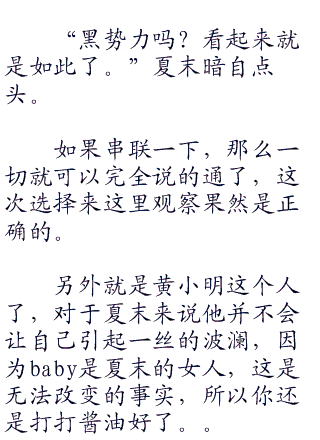 “黑势力吗？看起来就
是如此了。”夏末暗自点
头。
如果串联一下，那么一
切就可以完全说的通了，这
次选择来这里观察果然是正
确的。
另外就是黄小明这个人
了，对于夏末来说他并不会
让自己引起一丝的波澜，因
为baby是夏末的女人，这是
无法改变的事实，所以你还
是打打酱油好了。。